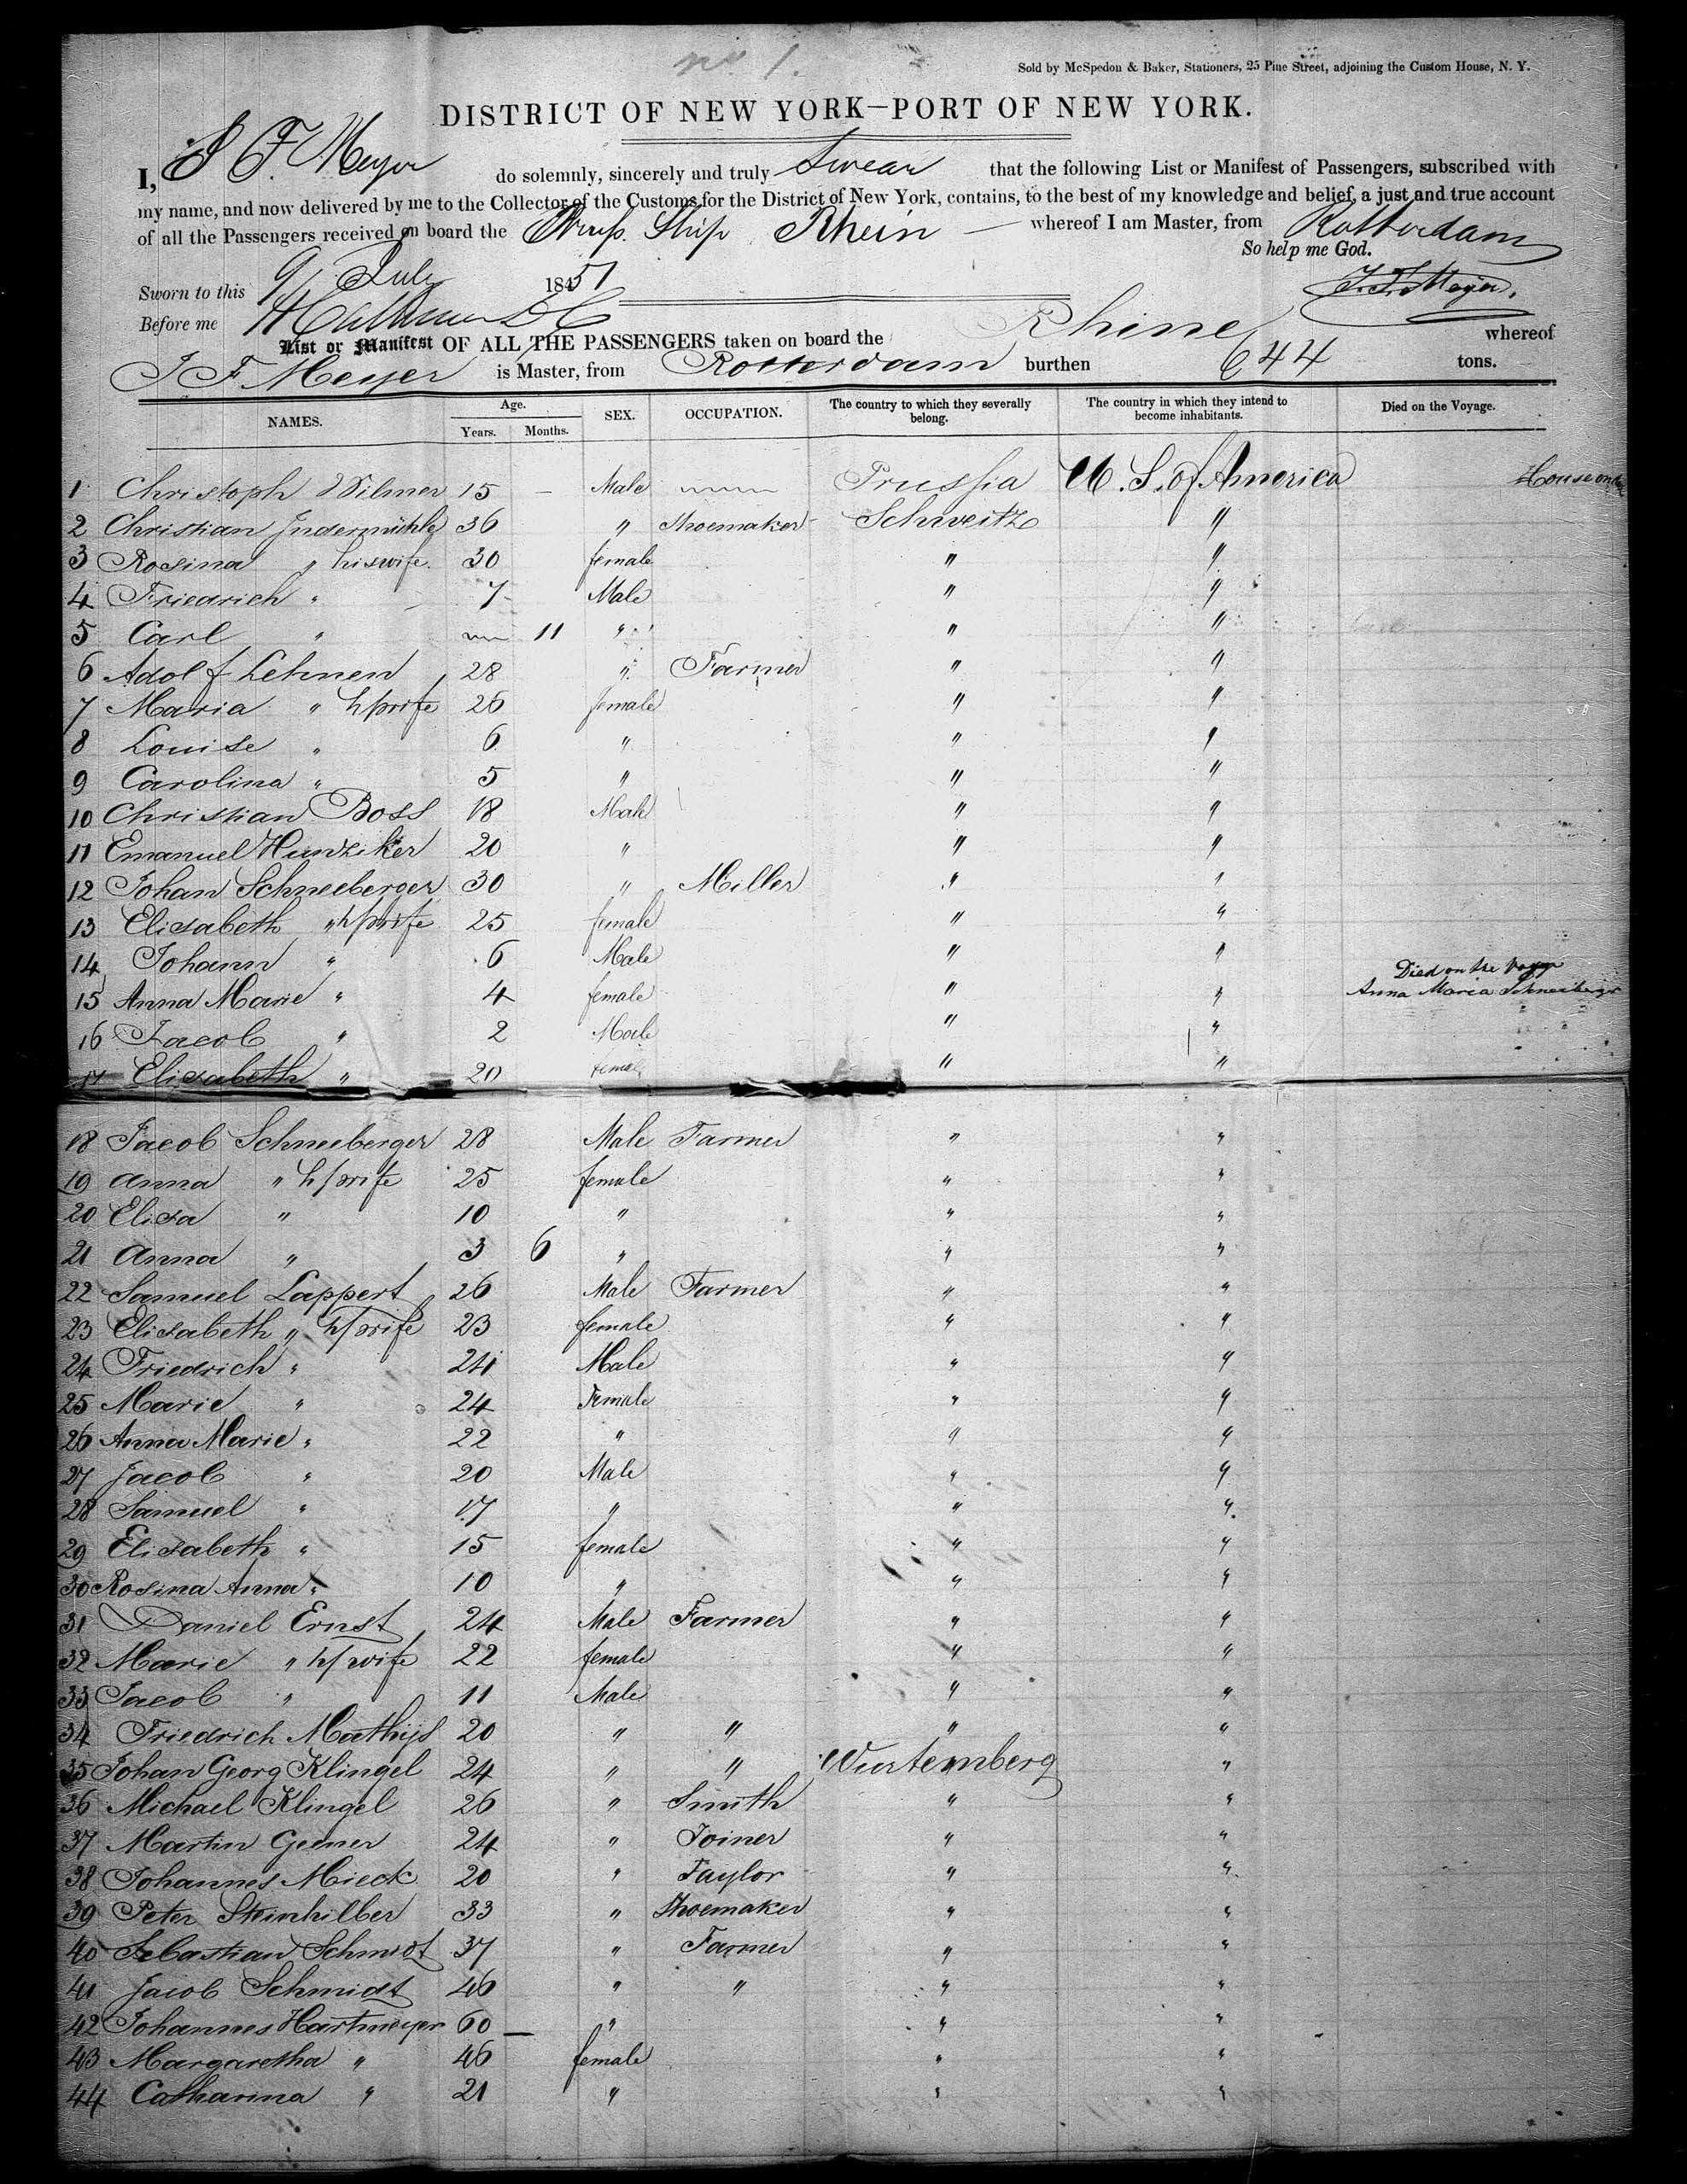 no 1.
Sold by McSpedon & Baker, Stationers, 25 Pine Street, adjoining the Custom House, N. Y.
DISTRICT OF NEW YORK—PORT OF NEW YORK.
I, J F. Meyer do solemnly, sincerely and truly Swear that the following List or Manifest of Passengers, subscribed with
my name, and now delivered by me to the Collector of the Customs for the District of New York, contains, to the best of my knowledge and belief, a just and true account
of all the Passengers received on board the Pruss. Ship Rhein — whereof I am Master, from Rotterdam
So help me God.
Sworn to this 9 July 1851 J. F. Meyer.
Before me
List or Manifest OF ALL THE PASSENGERS taken on board the Rhine whereof
J F Meyer is Master, from Rotterdam burthen 644 tons.
NAMES. Age. Years. Months. SEX. OCCUPATION. The country to which they severally belong. The country in which they intend to become inhabitants. Died on the Voyage.
1 Christoph Wilmer 15 — Male Prussia U. S. of America House on deck
2 Christian Indermühle 36 " Shoemaker Schweitz "
3 Rosina " his wife. 30 female " "
4 Friedrich " 7 Male " "
5 Carl " 11 " " "
6 Adolf Lehnen 28 " Farmer " "
7 Maria " h/wife 26 female " "
8 Louise " 6 " " "
9 Carolina " 5 " " "
10 Christian Boss 18 Male " "
11 Emanuel Hunziker 20 " " "
12 Johan Schneeberger 30 " Miller " "
13 Elisabeth " h/wife 25 female " "
14 Johann " 6 Male " "
15 Anna Marie " 4 female " " Died on the Voyge Anna Maria Schneeberger
16 Jacob " 2 Male " "
17 Elisabeth " 20 female " "
18 Jacob Schneeberger 28 Male Farmer " "
19 Anna " h/wife 25 female " "
20 Elisa " 10 " " "
21 Anna " 3 6 " " "
22 Samuel Lappert 26 Male Farmer " "
23 Elisabeth " h/wife 23 female " "
24 Friedrich " 24 Male " "
25 Marie " 24 Female " "
26 Anna Marie " 22 " " "
27 Jacob " 20 Male " "
28 Samuel " 17 " " "
29 Elisabeth " 15 female " "
30 Rosina Anna " 10 " " "
31 Daniel Ernst 24 Male Farmer " "
32 Marie " h/wife 22 female " "
33 Jacob " 11 Male " "
34 Friedrich Mathijs 20 " " " "
35 Johan Georg Klingel 24 " " Wurtemberg "
36 Michael Klingel 26 " Smith " "
37 Martin Geener 24 " Joiner " "
38 Johannes Mieck 20 " Taylor " "
39 Peter Steinhilber 33 " Shoemaker " "
40 Sebastian Schmidt 37 " Farmer " "
41 Jacob Schmidt 46 " " " "
42 Johannes Hartmeyer 60 — " " "
43 Margaretha " 46 female " "
44 Catharina " 21 " " "